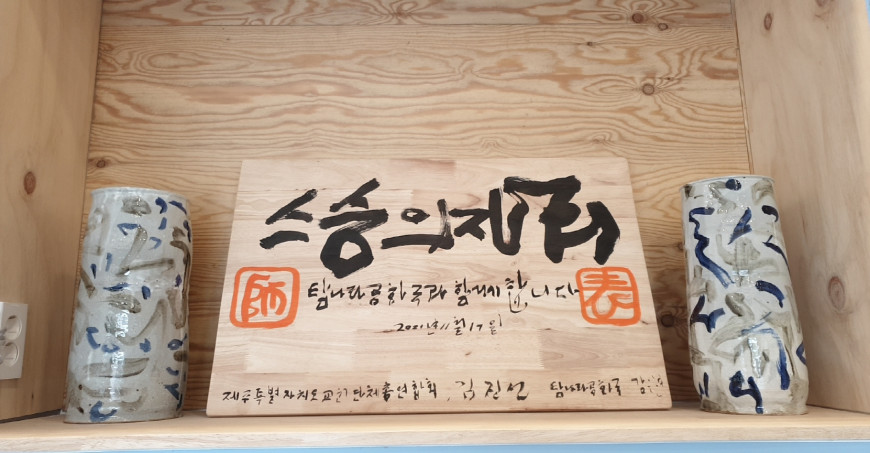 스승의
師 탐나라공화국과 함께 합니다 表
2021년 11월 17일
제주특별자치도교원단체총연합회 김진선 탐나라공화국